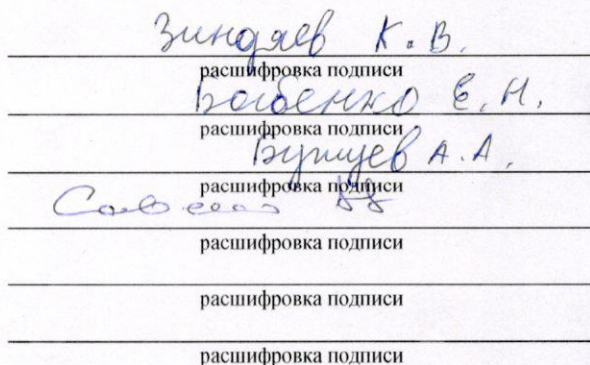 Зиндяев К.В.
расшифровка подписи
Бабенко Е.Н.
расшифровка подписи
А.А.
расшифровка подписи
расшифровка подписи
расшифровка подписи
расшифровка подписи